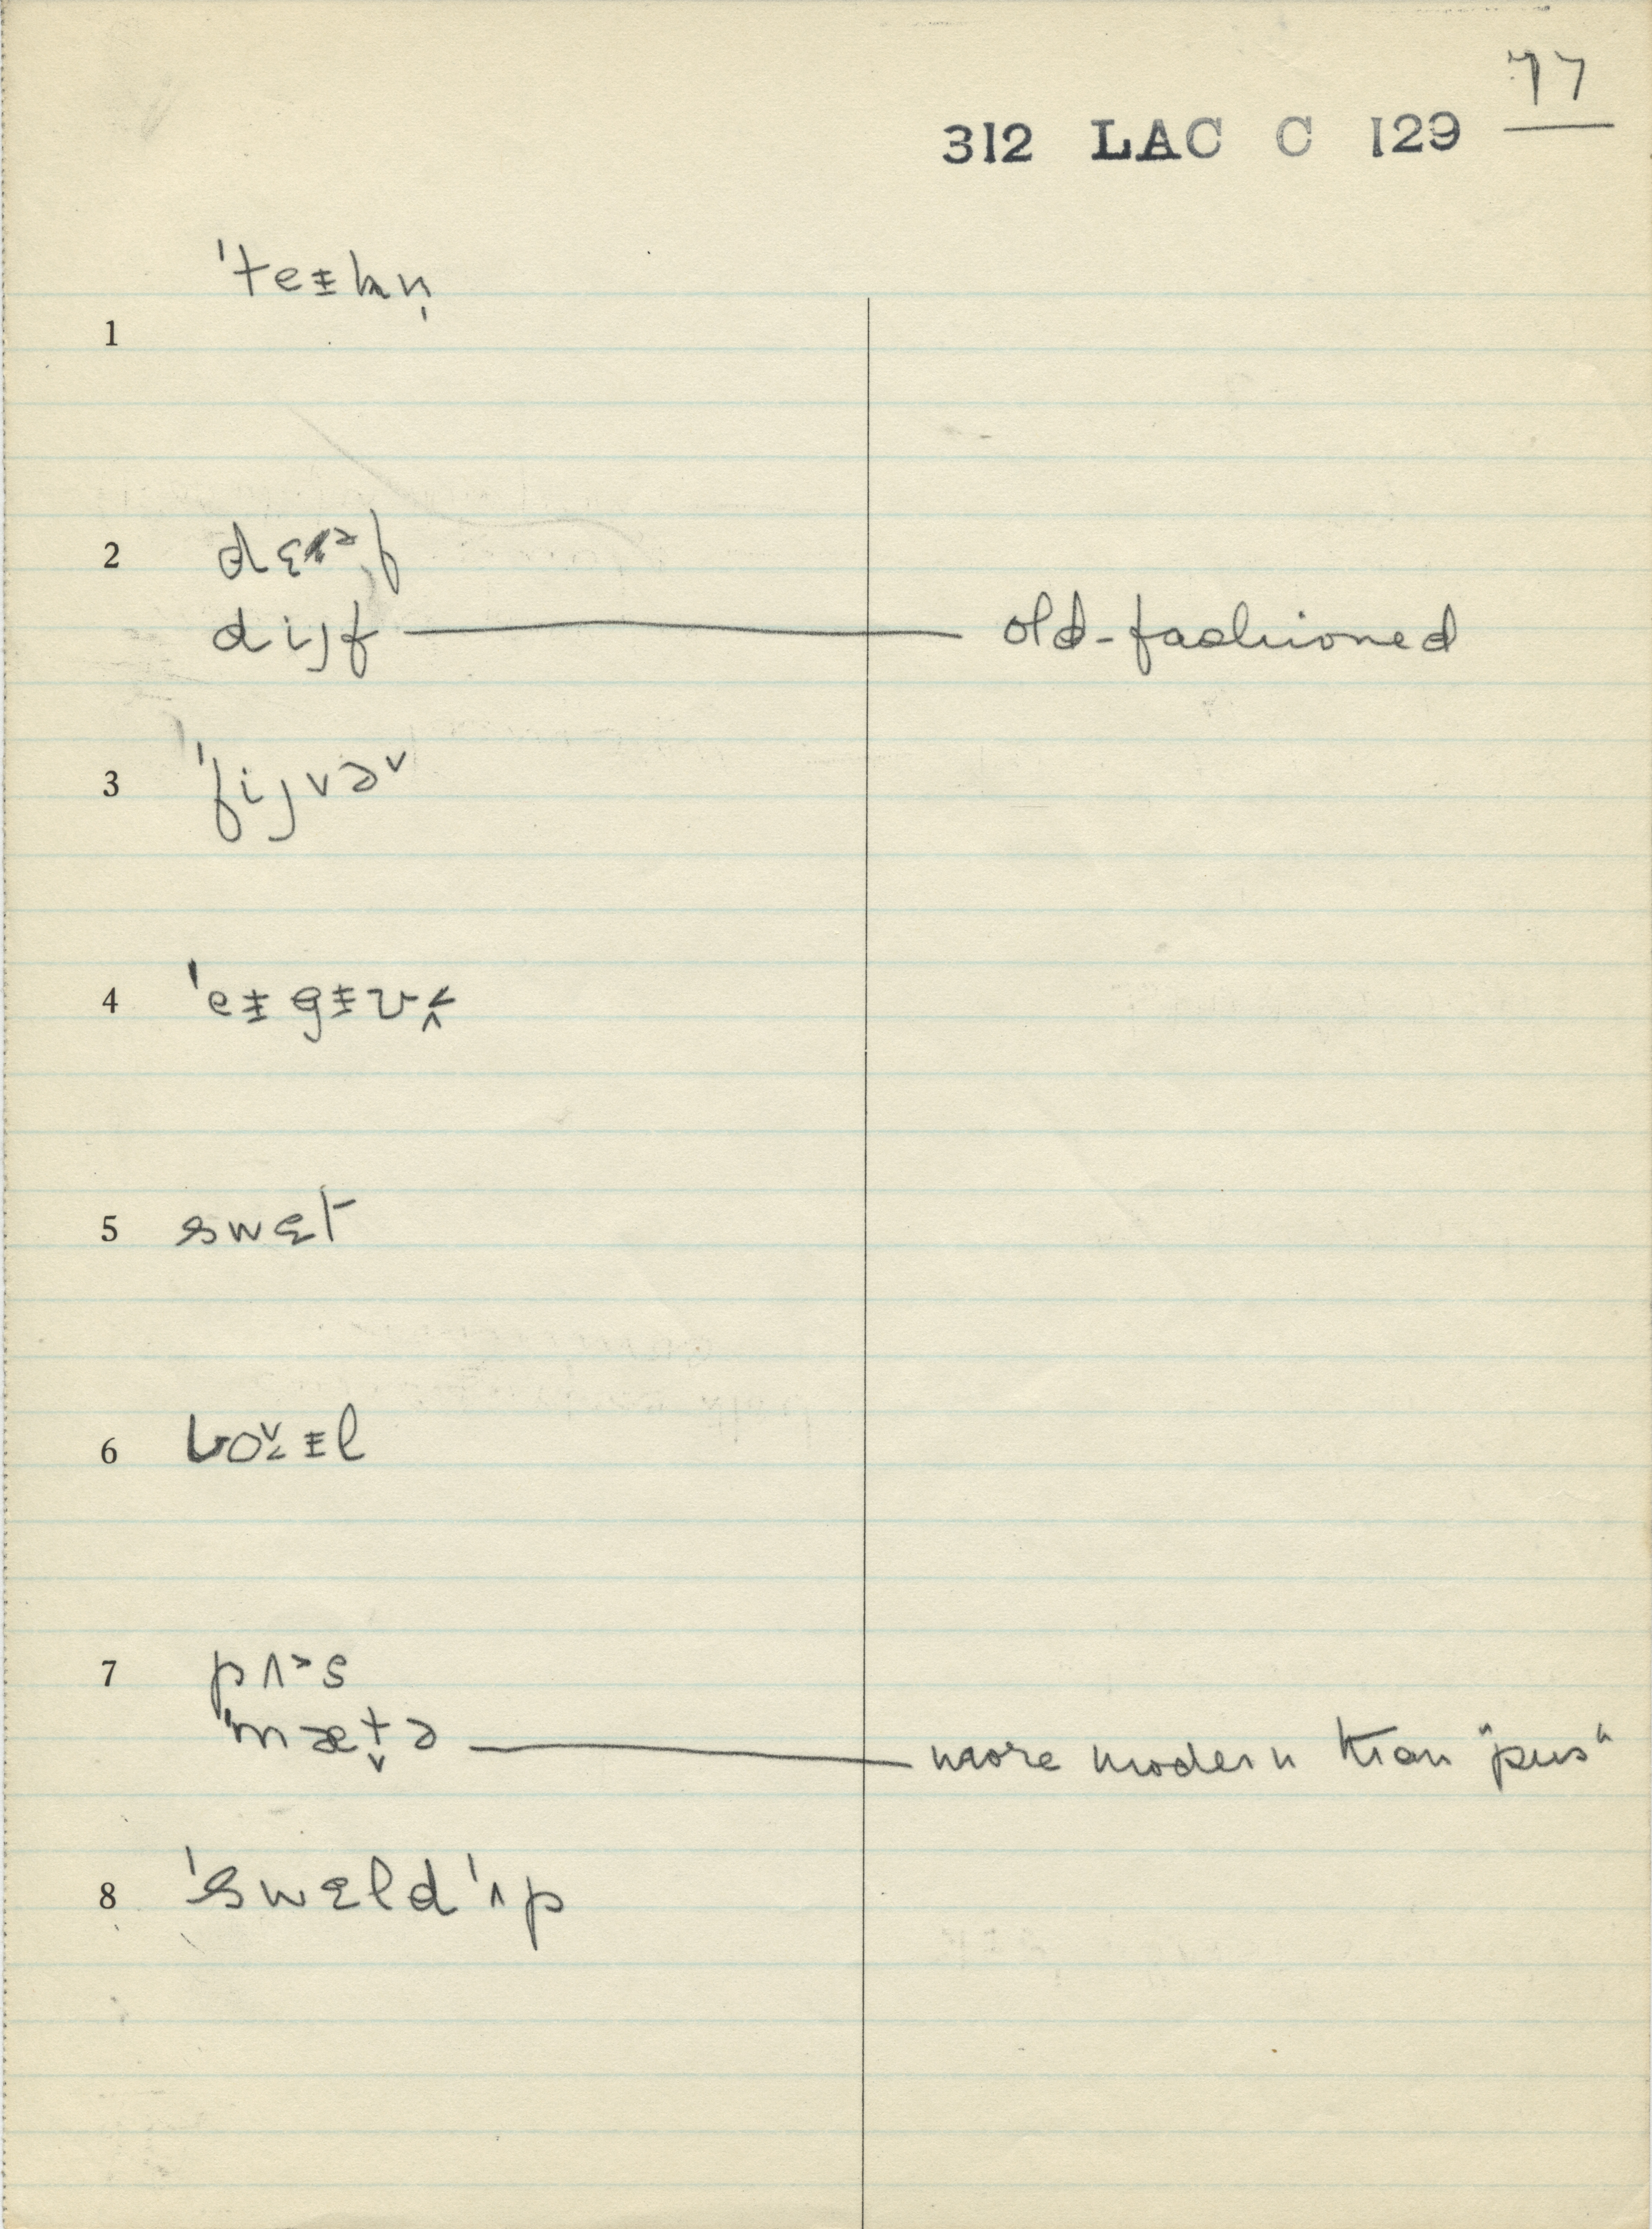 77
312 LAC C 129
1 ˈteɪkn̩
2 dɛəf
dijf old-fashioned
3 ˈfijvə˅
4 ˈeɪgɪʊ
5 swɛt
6 bo˅ɪl
7 pʌ˃s
ˈmæt̬ə more modern than "pus"
8 ˈswɛldˈʌp